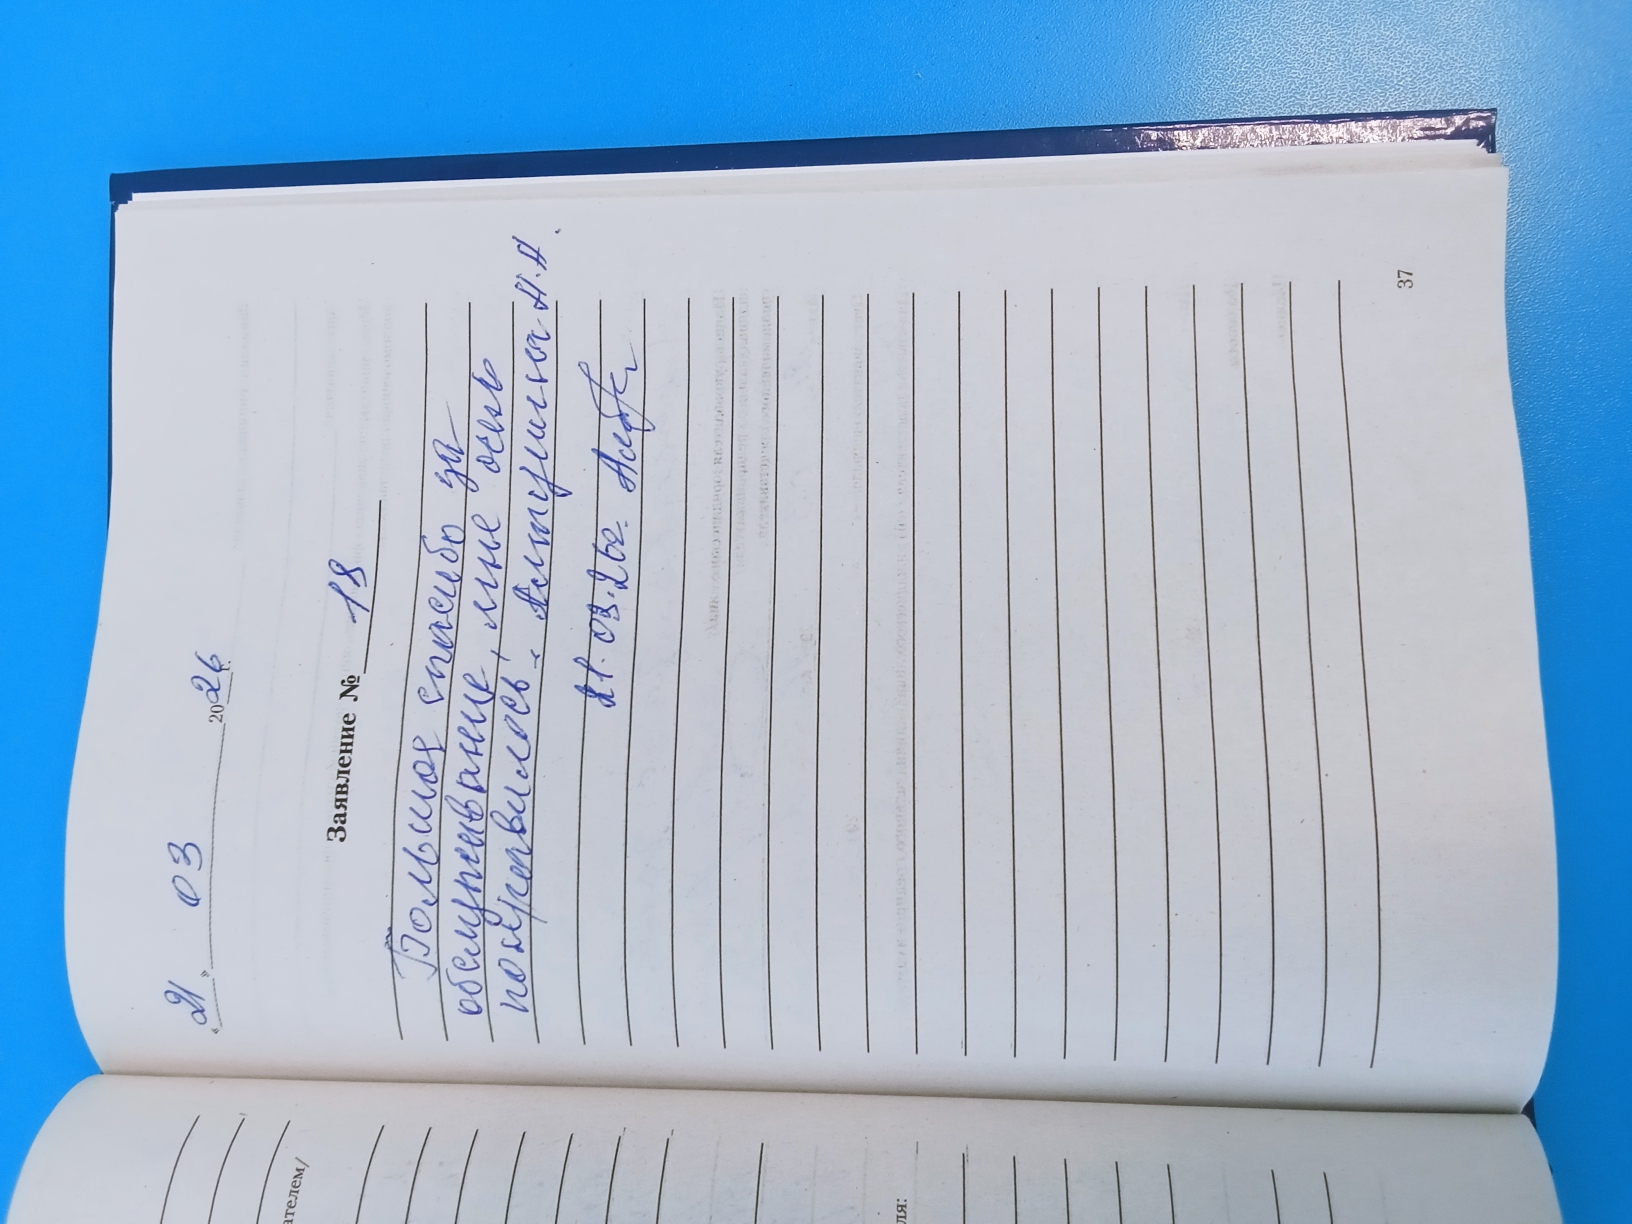 « 21 » 03 2026 г.
Заявление № 18
Большое спасибо за
обслуживание, мне очень
понравилось!
21.03.26г.
37
ателем/
ля: